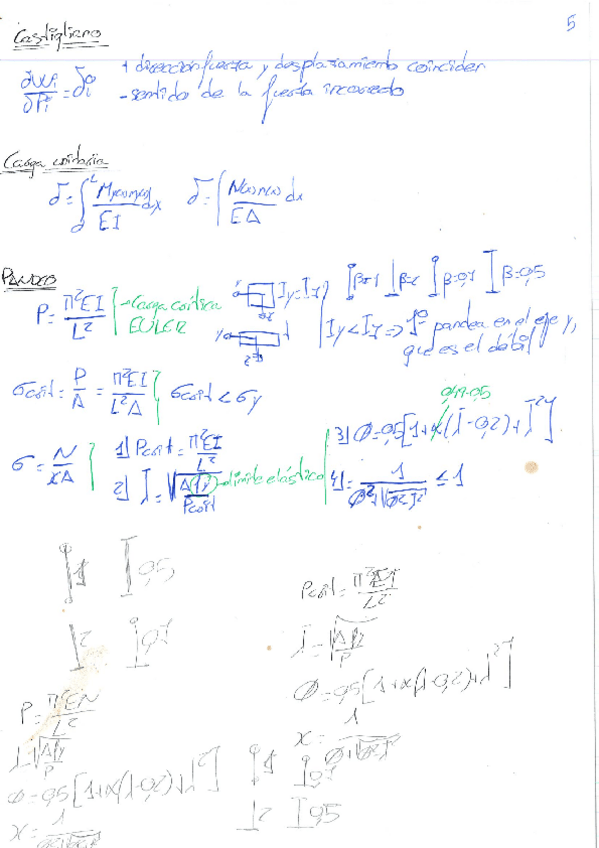 5
Castigliano
∂Wi/∂Pi = δi + dirección fuerza y desplazamiento coinciden
- sentido de la fuerza incorrecto
Carga unitaria
δ = ∫₀ᴸ M(x)m(x)/EI dx δ = ∫ N(x)n(x)/EA dx
PANDEO
P = π²EI/L² → Carga crítica EULER Iy = Iz β=1 β=2 β=0,7 β=0,5
Iy < Iz => 1º pandea en el eje y,
que es el débil
σcrit = P/A = π²EI/L²A σcrit < σy
σ = N/χA 1) Pcrit = π²EI/L² 3) Ø = 0,5[1+α(λ̄-0,2)+λ̄²]
2) λ̄ = √(A fy/Pcrit) → límite elástico 4) = 1/(Ø+√(Ø²-λ̄²)) ≤ 1
1 0,5
2 0,7
Pcrit = π²EI/L²
λ = √(A fy/P)
Ø = 0,5[1+α(λ-0,2)+λ²]
P = π²EN/L²
λ = √(A fy/P)
Ø = 0,5[1+α(λ-0,2)+λ²]
1 0,7
2 0,5